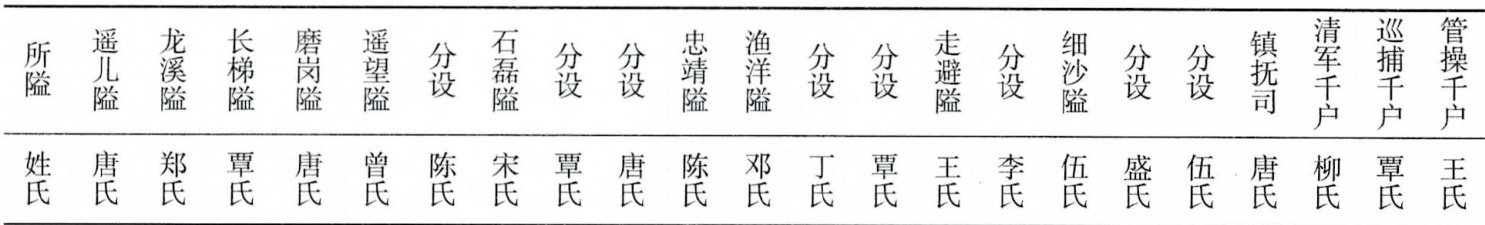 所隘 遥儿隘 龙溪隘 长梯隘 磨岗隘 遥望隘 分设 石磊隘 分设 分设 忠靖隘 渔洋隘 分设 分设 走避隘 分设 细沙隘 分设 分设 镇抚司 清军千户 巡捕千户 管操千户
姓氏 唐氏 郑氏 覃氏 唐氏 曾氏 陈氏 宋氏 覃氏 唐氏 陈氏 邓氏 丁氏 覃氏 王氏 李氏 伍氏 盛氏 伍氏 唐氏 柳氏 覃氏 王氏